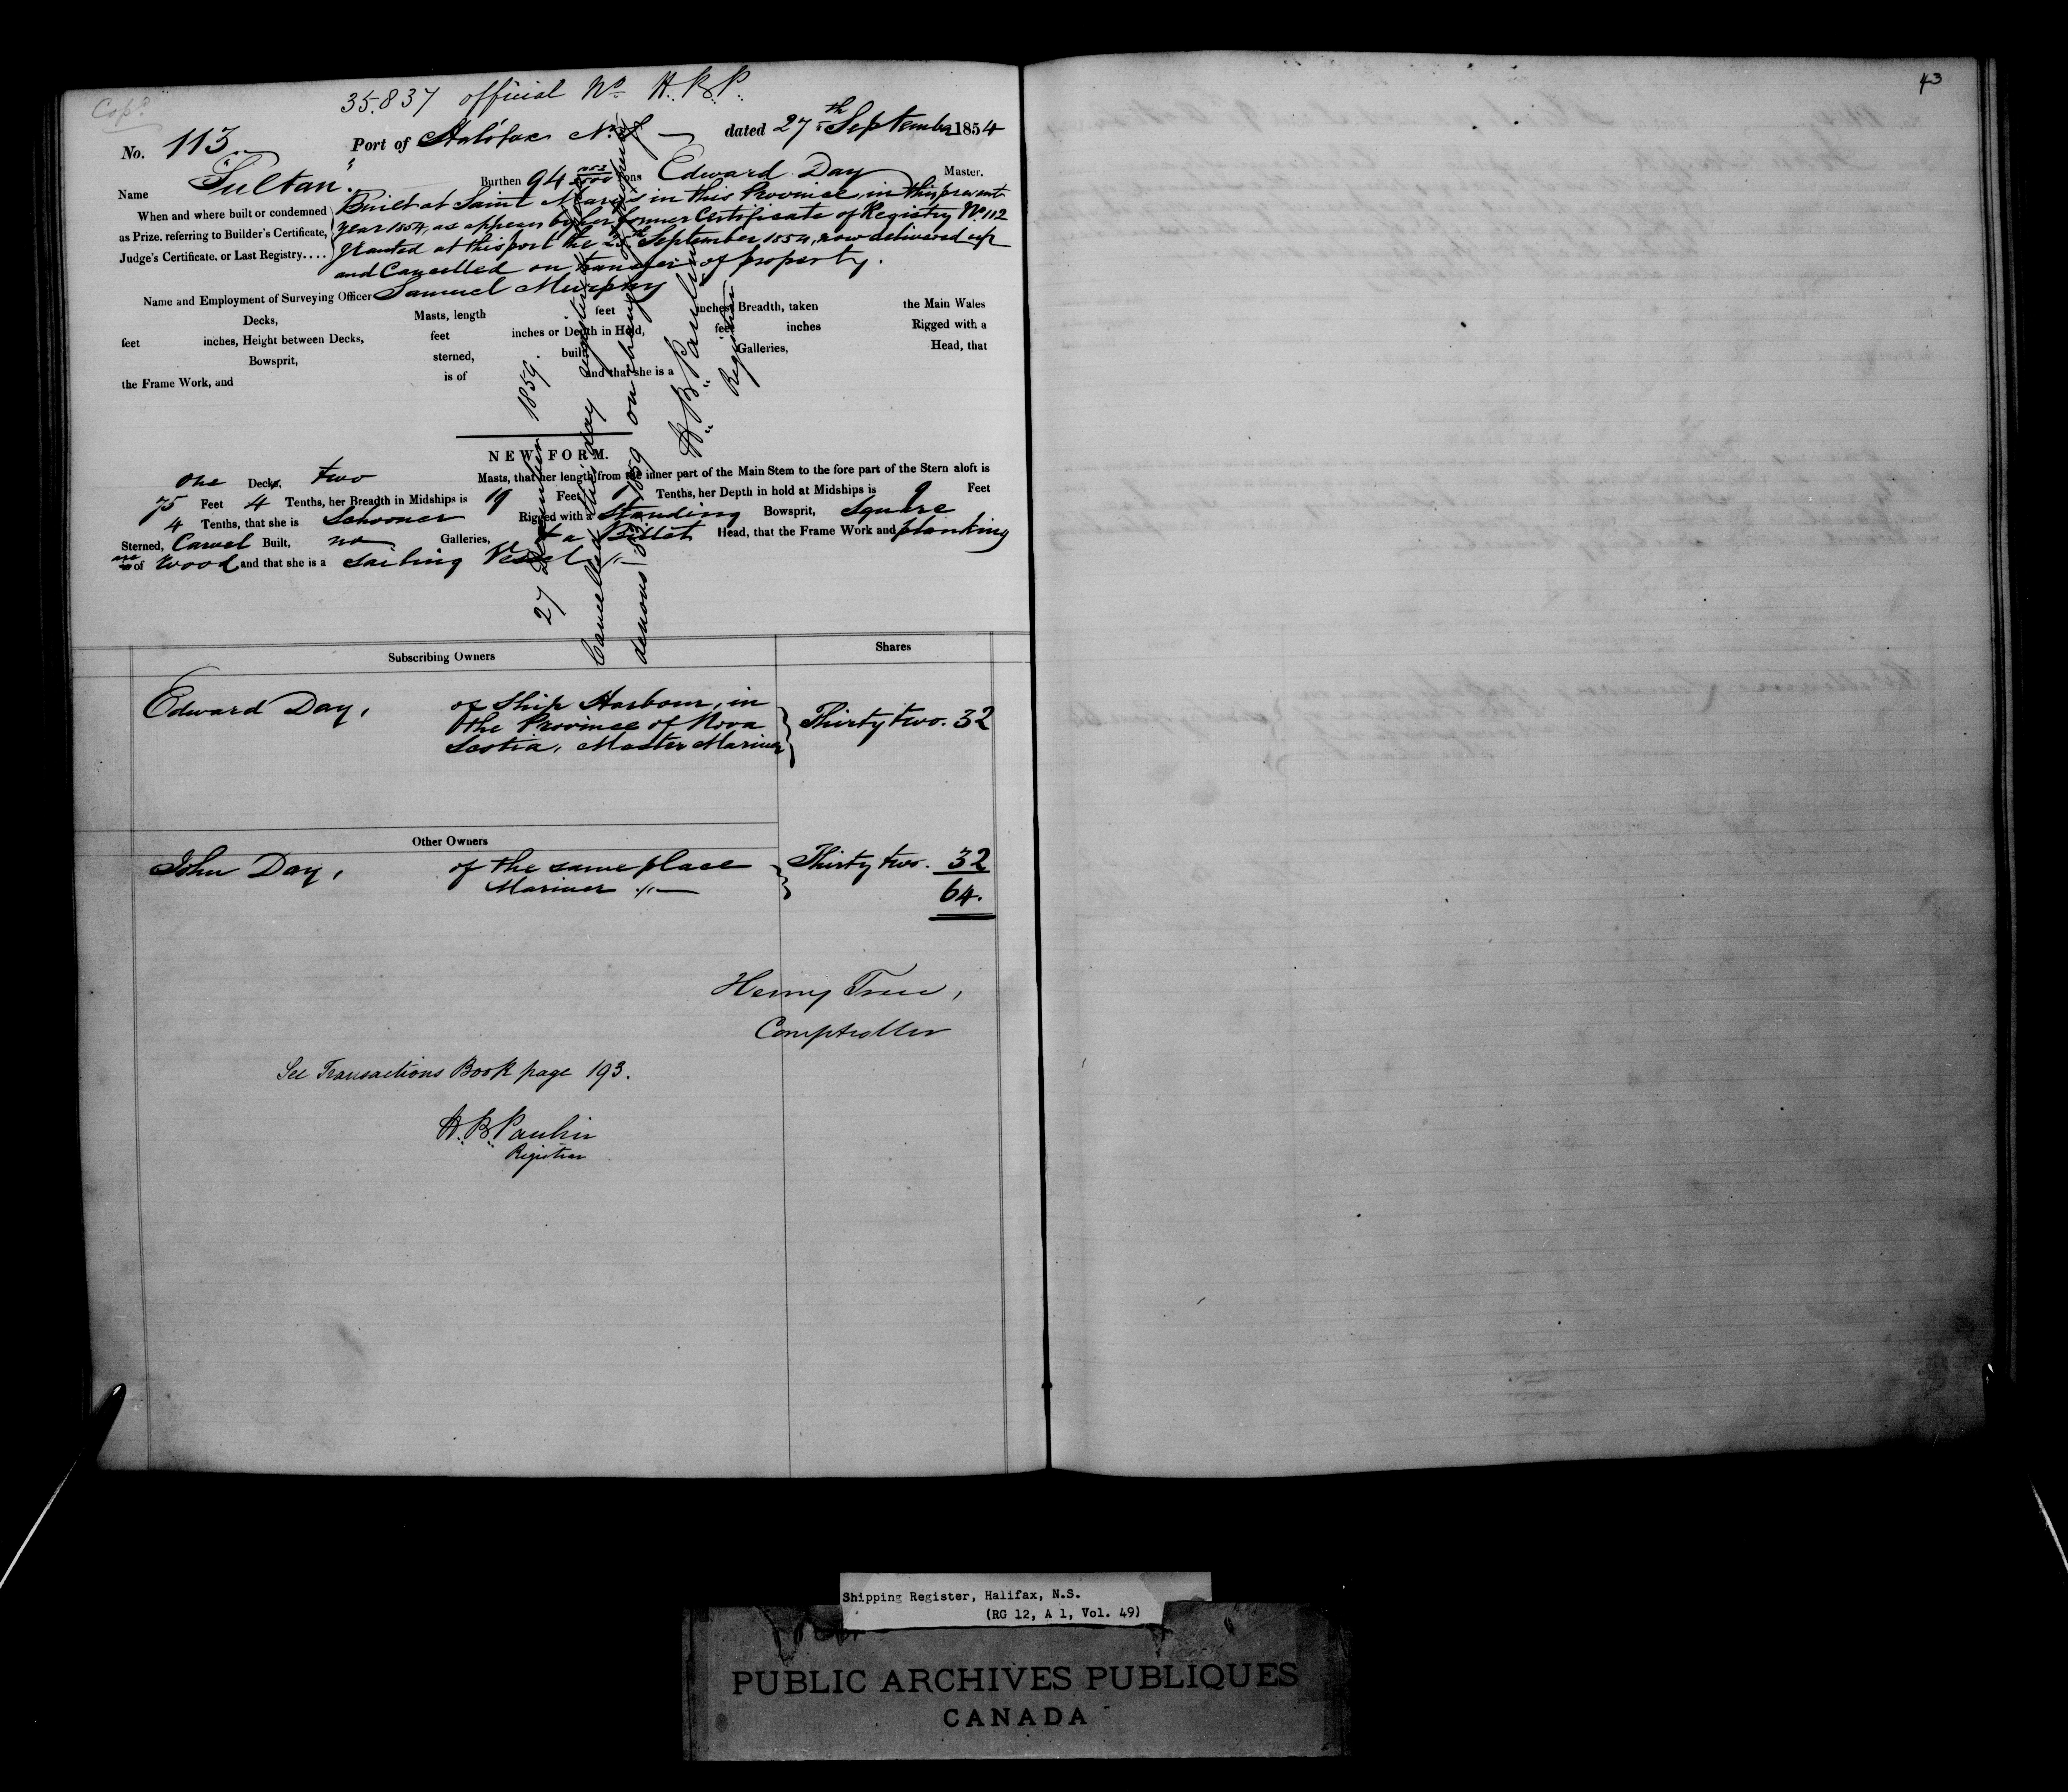 Cop.d
35.837 official No H.B.P.
No. 113. Port of Halifax N.S. dated 27th September 1854
Name "Sultan". Burthen 94 Tons Edward Day Master.
When and where built or condemned
as Prize. referring to Builder's Certificate,
Judge's Certificate. or Last Registry....
Built at Saint Marys in this Province, in this present
year 1854, as appears by her former Certificate of Registry No. 112
Granted at this port the September 1854, now delivered up
and Cancelled on transfer of property.
Name and Employment of Surveying Officer Samuel Murphy
Decks, Masts, length feet inches Breadth, taken the Main Wales
feet inches, Height between Decks, feet inches or Depth in Hold, feet inches Rigged with a
Bowsprit, sterned, built Galleries, Head, that
the Frame Work, and is of and that she is a
NEW FORM.
One Decks, two Masts, that her length from the inner part of the Main Stem to the fore part of the Stern aloft is
75 Feet 4 Tenths, her Breadth in Midships is 19 Feet Tenths, her Depth in hold at Midships is 9 Feet
4 Tenths, that she is Schooner Rigged with a Standing Bowsprit, Square
Sterned, Carvel Built, no Galleries, & a Billet Head, that the Frame Work and planking
are of Wood and that she is a Sailing Vessel
27 December 1859.
Cancelled this day
on change of property
H.B. Paulin
Registrar
Subscribing Owners Shares
Edward Day, of Ship Harbour, in
the Province of Nova
Scotia, Master Mariner Thirty two. 32
Other Owners
John Day, of the same place Thirty two. 32
Mariner 64.
Henry Tree,
Comptroller
See Transactions Book page 193.
H.B. Paulin
Registrar
43
Shipping Register, Halifax, N.S.
(RG 12, A 1, Vol. 49)
PUBLIC ARCHIVES PUBLIQUES
CANADA